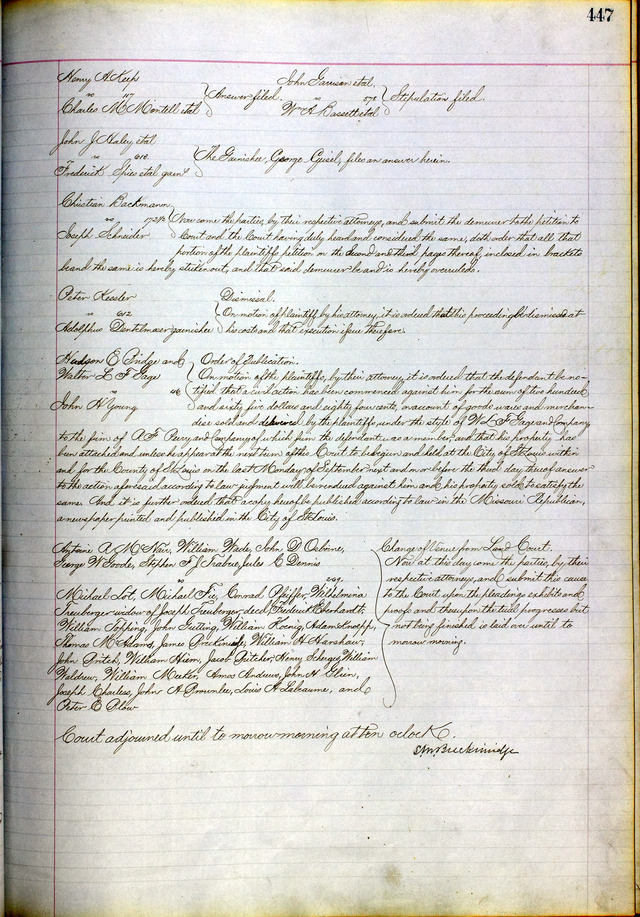 447
Henry A Keep
vs 117 Answer filed.
Charles M. Montell etal
John Garrison etal
vs 578 Stipulation filed.
Wm A Bassett etal
John J Haley etal
vs 618. The Garnishee, George Geisel, files an answer herein.
Frederick Spies etal garnt
Christian Bachmann
vs Now come the parties, by their respective attorneys, and submit the demurrer to the petition to
Joseph Schneider Court and the Court having duly heard and considered the same, doth order that all that
portion of the plaintiffs petition on the second and third pages thereof, inclosed in brackets
be and the same is hereby striken out, and that said demurrer be and is hereby overruled.
Peter Kessler Dismissal.
vs 612 On motion of plaintiff by his attorney, it is ordered that this proceeding be dismissed at
Adolphus garnishee his cost and that execution issue therefore.
Hudson E Bridge and Order of Publication.
Walter L F Gage On motion of the plaintiffs, by their attorney, it is ordered that the defendant be no-
vs tified that a civil action has been commenced against him for the sum of two hundred
John H Young and sixty five dollars and eighty four cents, on account of goods wares and merchan-
dise sold and delivered by the plaintiffs under the style of W L F Gage and Company
to the firm of A F Perry and Company of which firm the defendant was a member, and that his property has
been attached and unless he appear at the next term of this Court to be gun and held at the City of St Louis within
and for the County of St Louis on the last Monday of September next and on or before the third day thereof answer
to the action aforesaid according to law, judgment will be rendered against him and his property sold to satisfy the
same. And it is further ordered that a copy hereof be published according to law in the Missouri Republican,
a newspaper printed and published in the City of St Louis.
Antoine A McNair, William Wade, John D Osborne,
George W Goode, Stephen F J Trabue, Jules C Dennis
vs
Michael Lot, Michael Fie, Conrad Pfeiffer, Wilhelmina
Treuberger widow of Joseph Treuberger decd, Frederick Eberhardt,
William Tepping, John Gutting, William Koenig, Adam Knoepp,
Thomas M Adams, James Breckinridge, William H Harshaw,
John Pritch, William Hiem, Jacob Gutcher, Henry Scherges, William
Waldrew, William Meeker, Amos Andrews, John H Glein,
Joseph Charless, John A Brownlee, Louis A Labeaume, and
Peter E Blow
Change of Venue from Land Court.
Now at this day come the parties, by their
respective attorneys, and submit this cause
to the Court upon the pleadings exhibits and
proofs and thereupon the trial progresses but
not being finished is laid over until to
morrow morning.
Court adjourned until to morrow morning at ten oclock.
S M Breckinridge